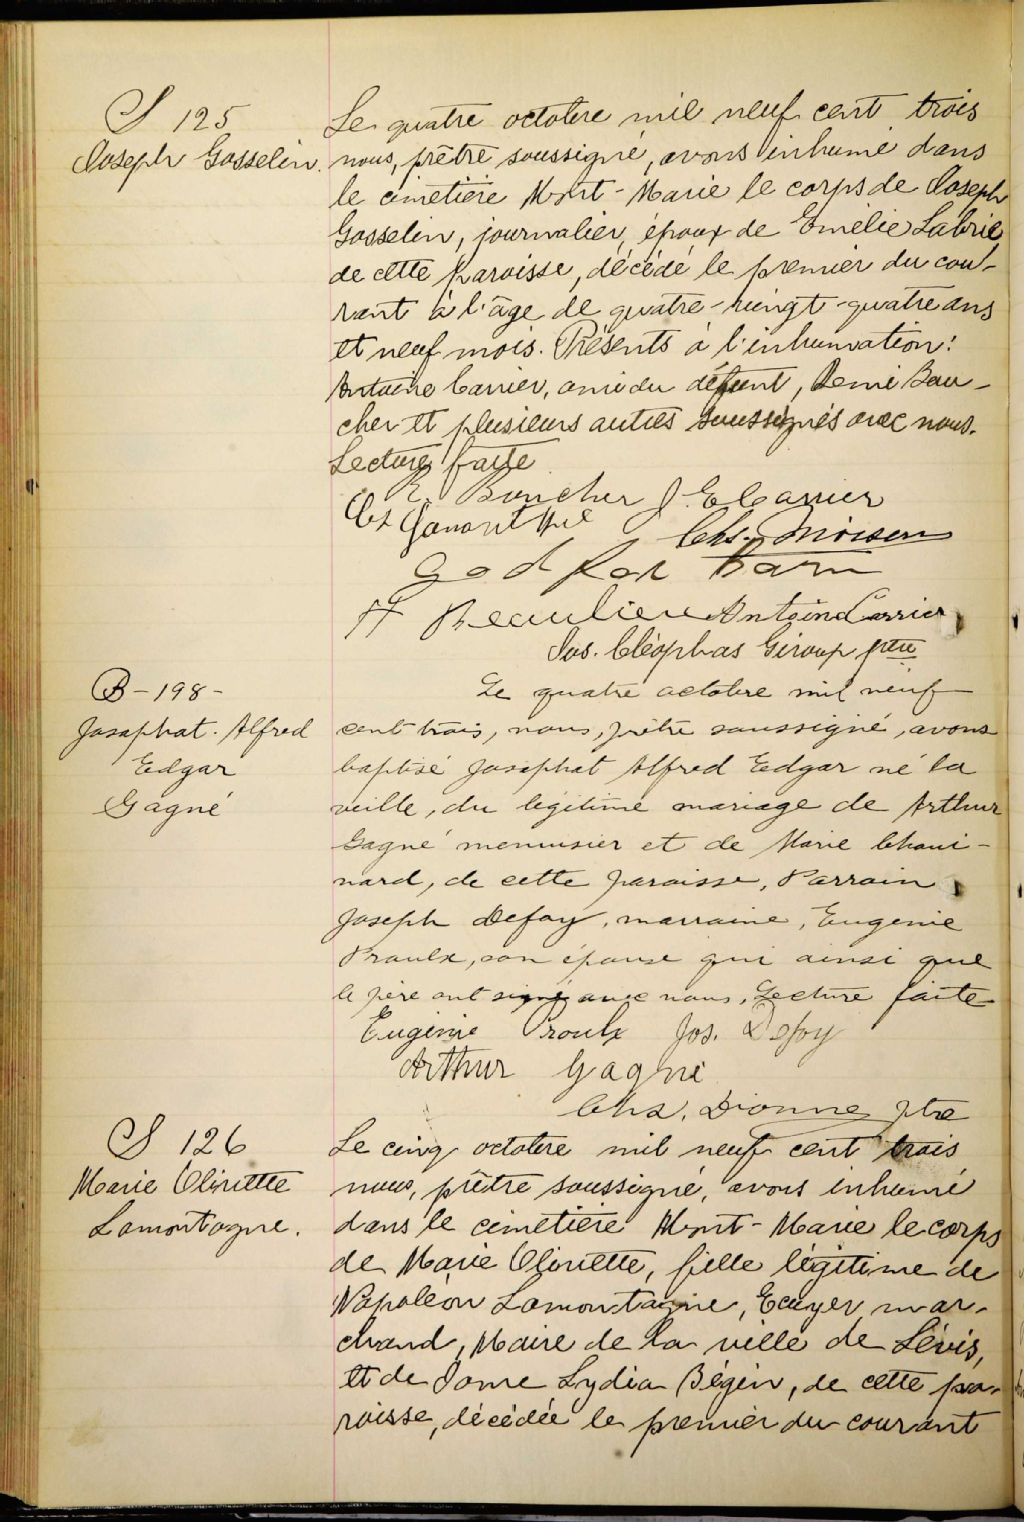 S 125
Joseph Gosselin.
Le quatre octobre mil neuf cent trois
nous, prêtre soussigné, avons inhumé dans
le cimetière Mont-Marie le corps de Joseph
Gosselin, journalier, époux de Emélie Labrie
de cette paroisse, décédé le premier du cou-
rant à l'âge de quatre-vingt-quatre ans
et neuf mois. Présents à l'inhumation:
Antoine Carrier, ami du défunt, Remi Bou-
cher et plusieurs autres soussignés avec nous.
Lecture faite
R. Boucher J. E. Carrier
Chs. Moisen
God
H Beaulieu Antoine Carrier
Jos. Cléophas Giroux ptre
B-198-
Josaphat. Alfred
Edgar
Gagné
Le quatre octobre mil neuf
cent trois, nous, prêtre soussigné, avons
baptisé Josaphat Alfred Edgar né la
veille, du légitime mariage de Arthur
Gagné menuisier et de Marie Choui-
nard, de cette paroisse, Parrain
Joseph Defoy, marraine, Eugenie
Proulx, son épouse qui ainsi que
le père ont signé avec nous, Lecture faite
Eugénie Proulx Jos. Defoy
Arthur Gagné
Chs. Dionne ptre
S 126
Marie Olivette
Lamontagne.
Le cinq octobre mil neuf cent trois
nous, prêtre soussigné, avons inhumé
dans le cimetière Mont-Marie le corps
de Marie Olivette, fille légitime de
Napoléon Lamontagne, Ecuyer mar-
chand, Maire de la ville de Lévis,
et de Dame Lydia Bégin, de cette pa-
roisse, décédée le premier du courant